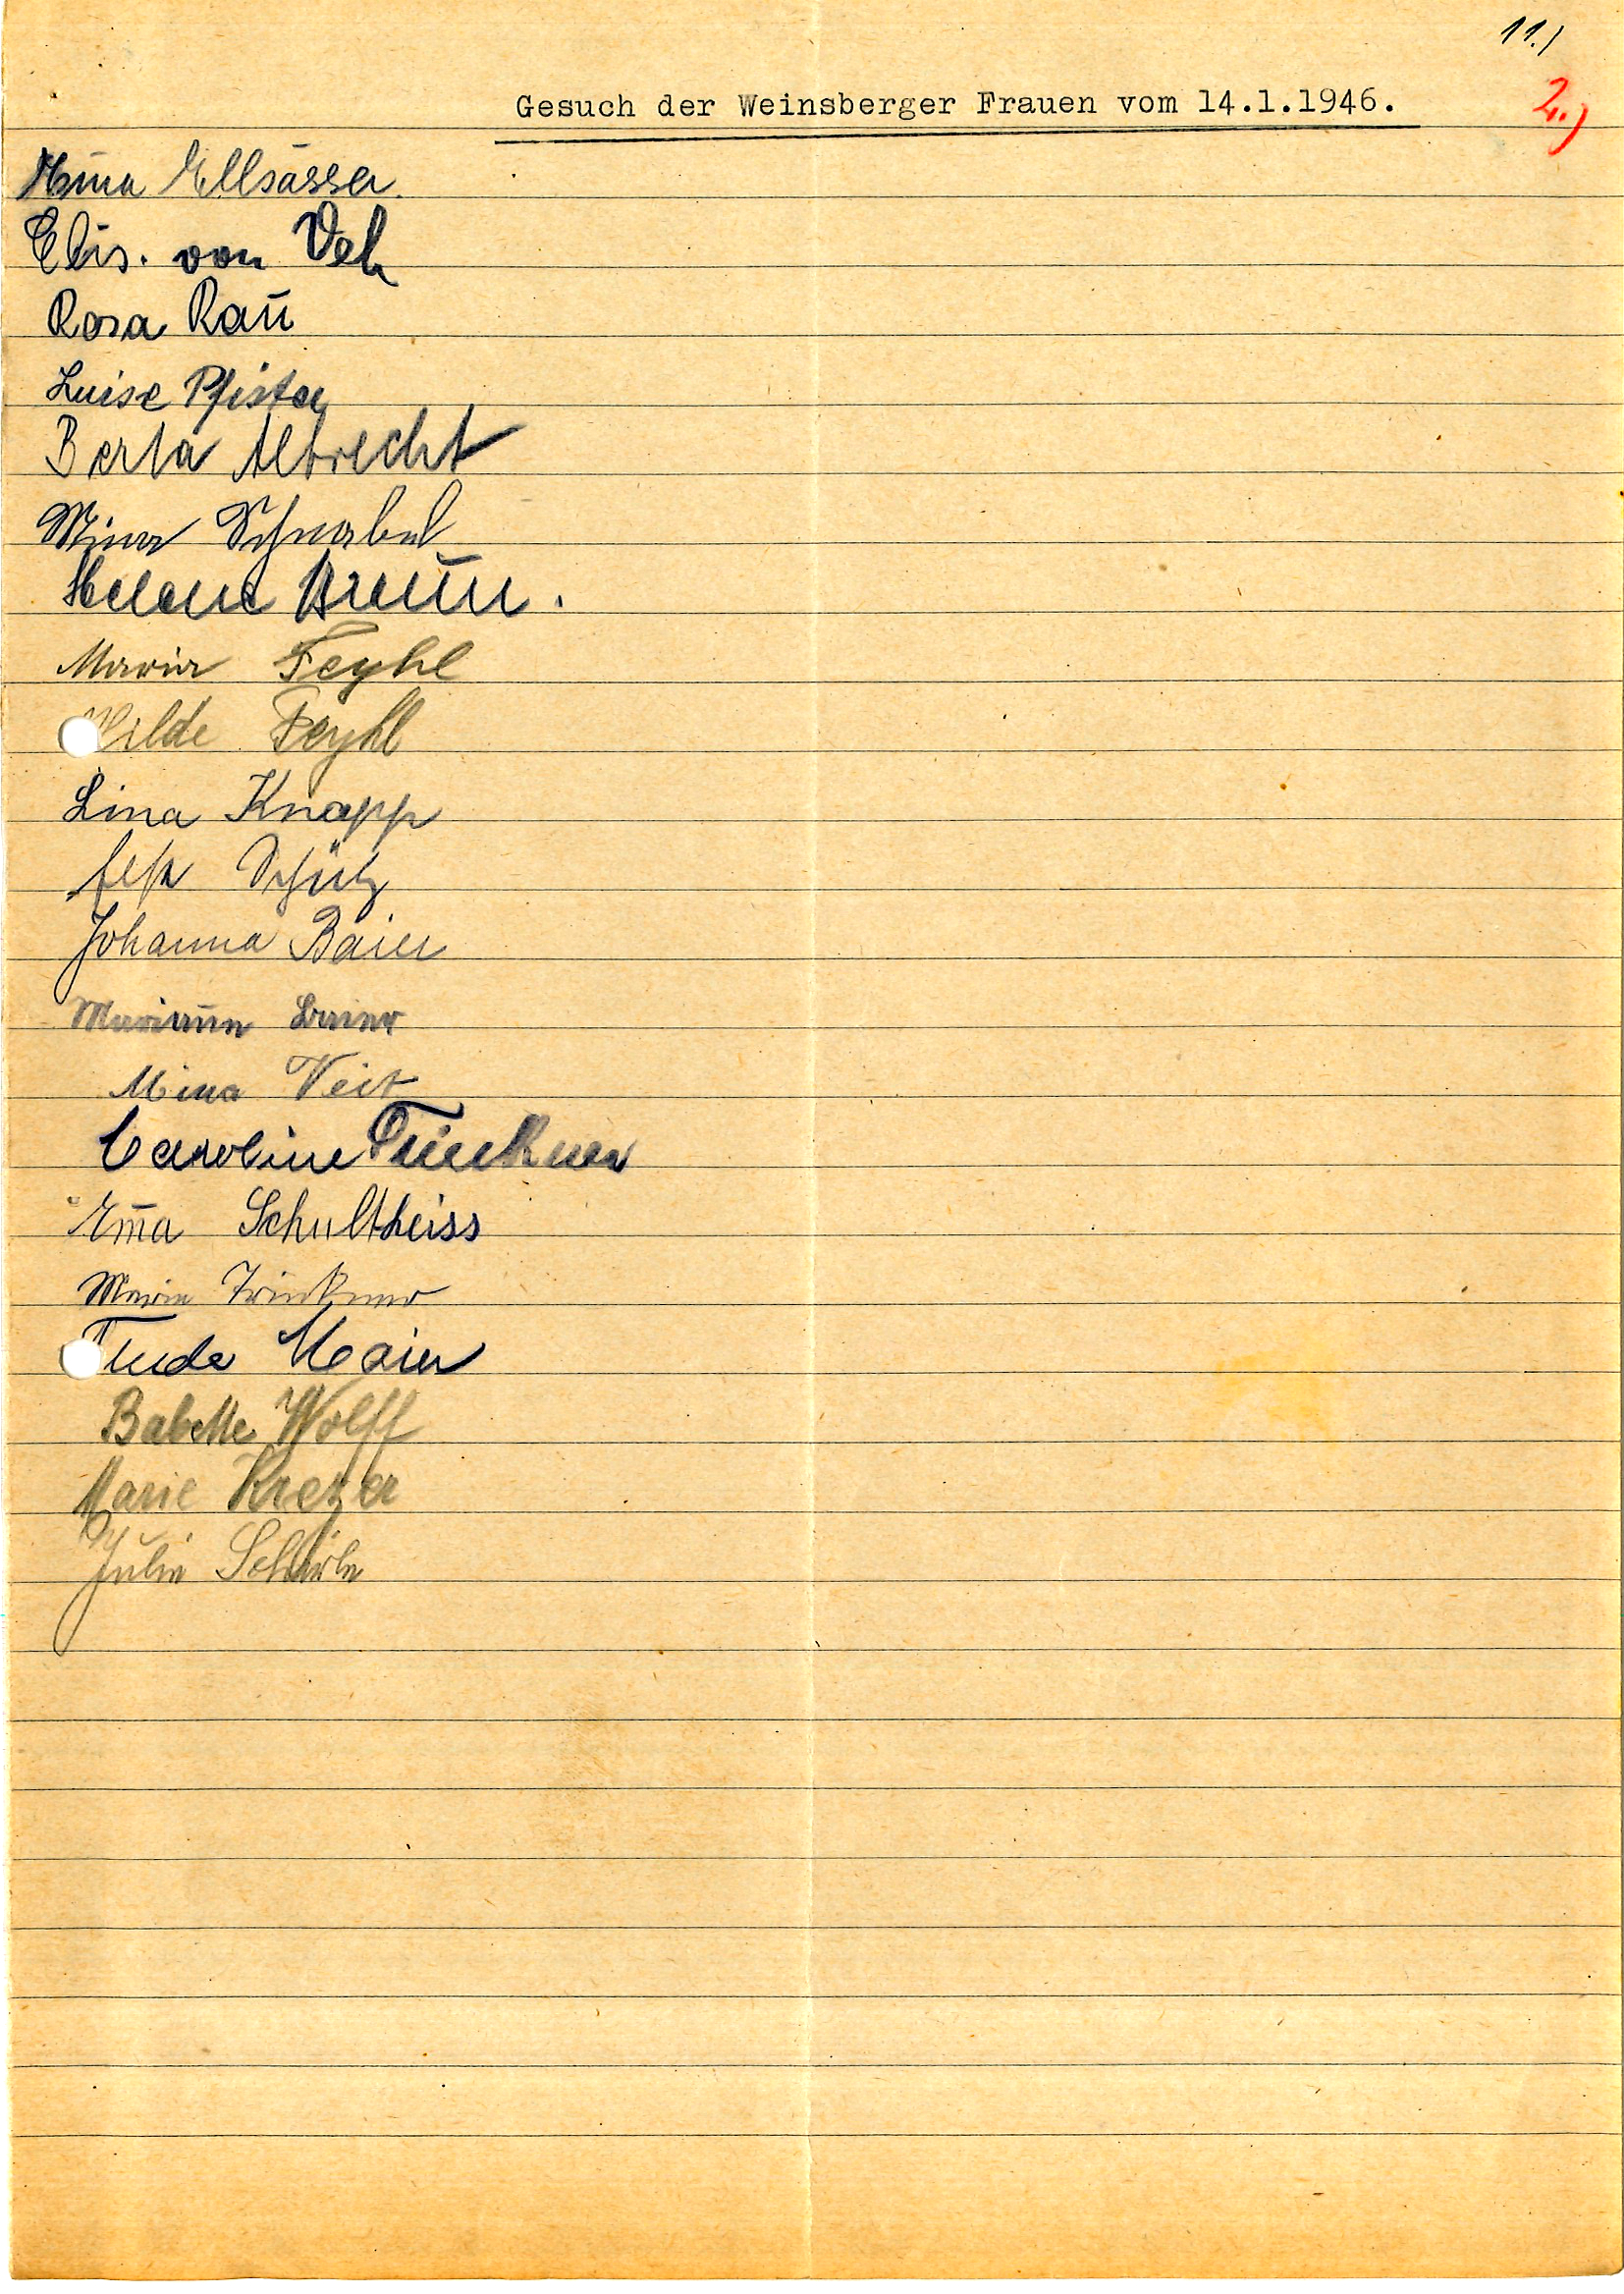 11.)
Gesuch der Weinsberger Frauen vom 14.1.1946.
2.)
Mina Ellsässer.
Elis. von Veh
Rosa Raū
Luise Pfister
Berta Albrecht
Mina Schnabel
Helene Braūn.
Maria Feyhl
Hilde Feyhl
Lina Knapp
Schütz
Johanna Baier
Baier
Mina Veit
Caroline Trinkner
Em̄a Schultheiss
Marie Trinkner
Maier
Babette Wolff
Marie Krezer
Julie